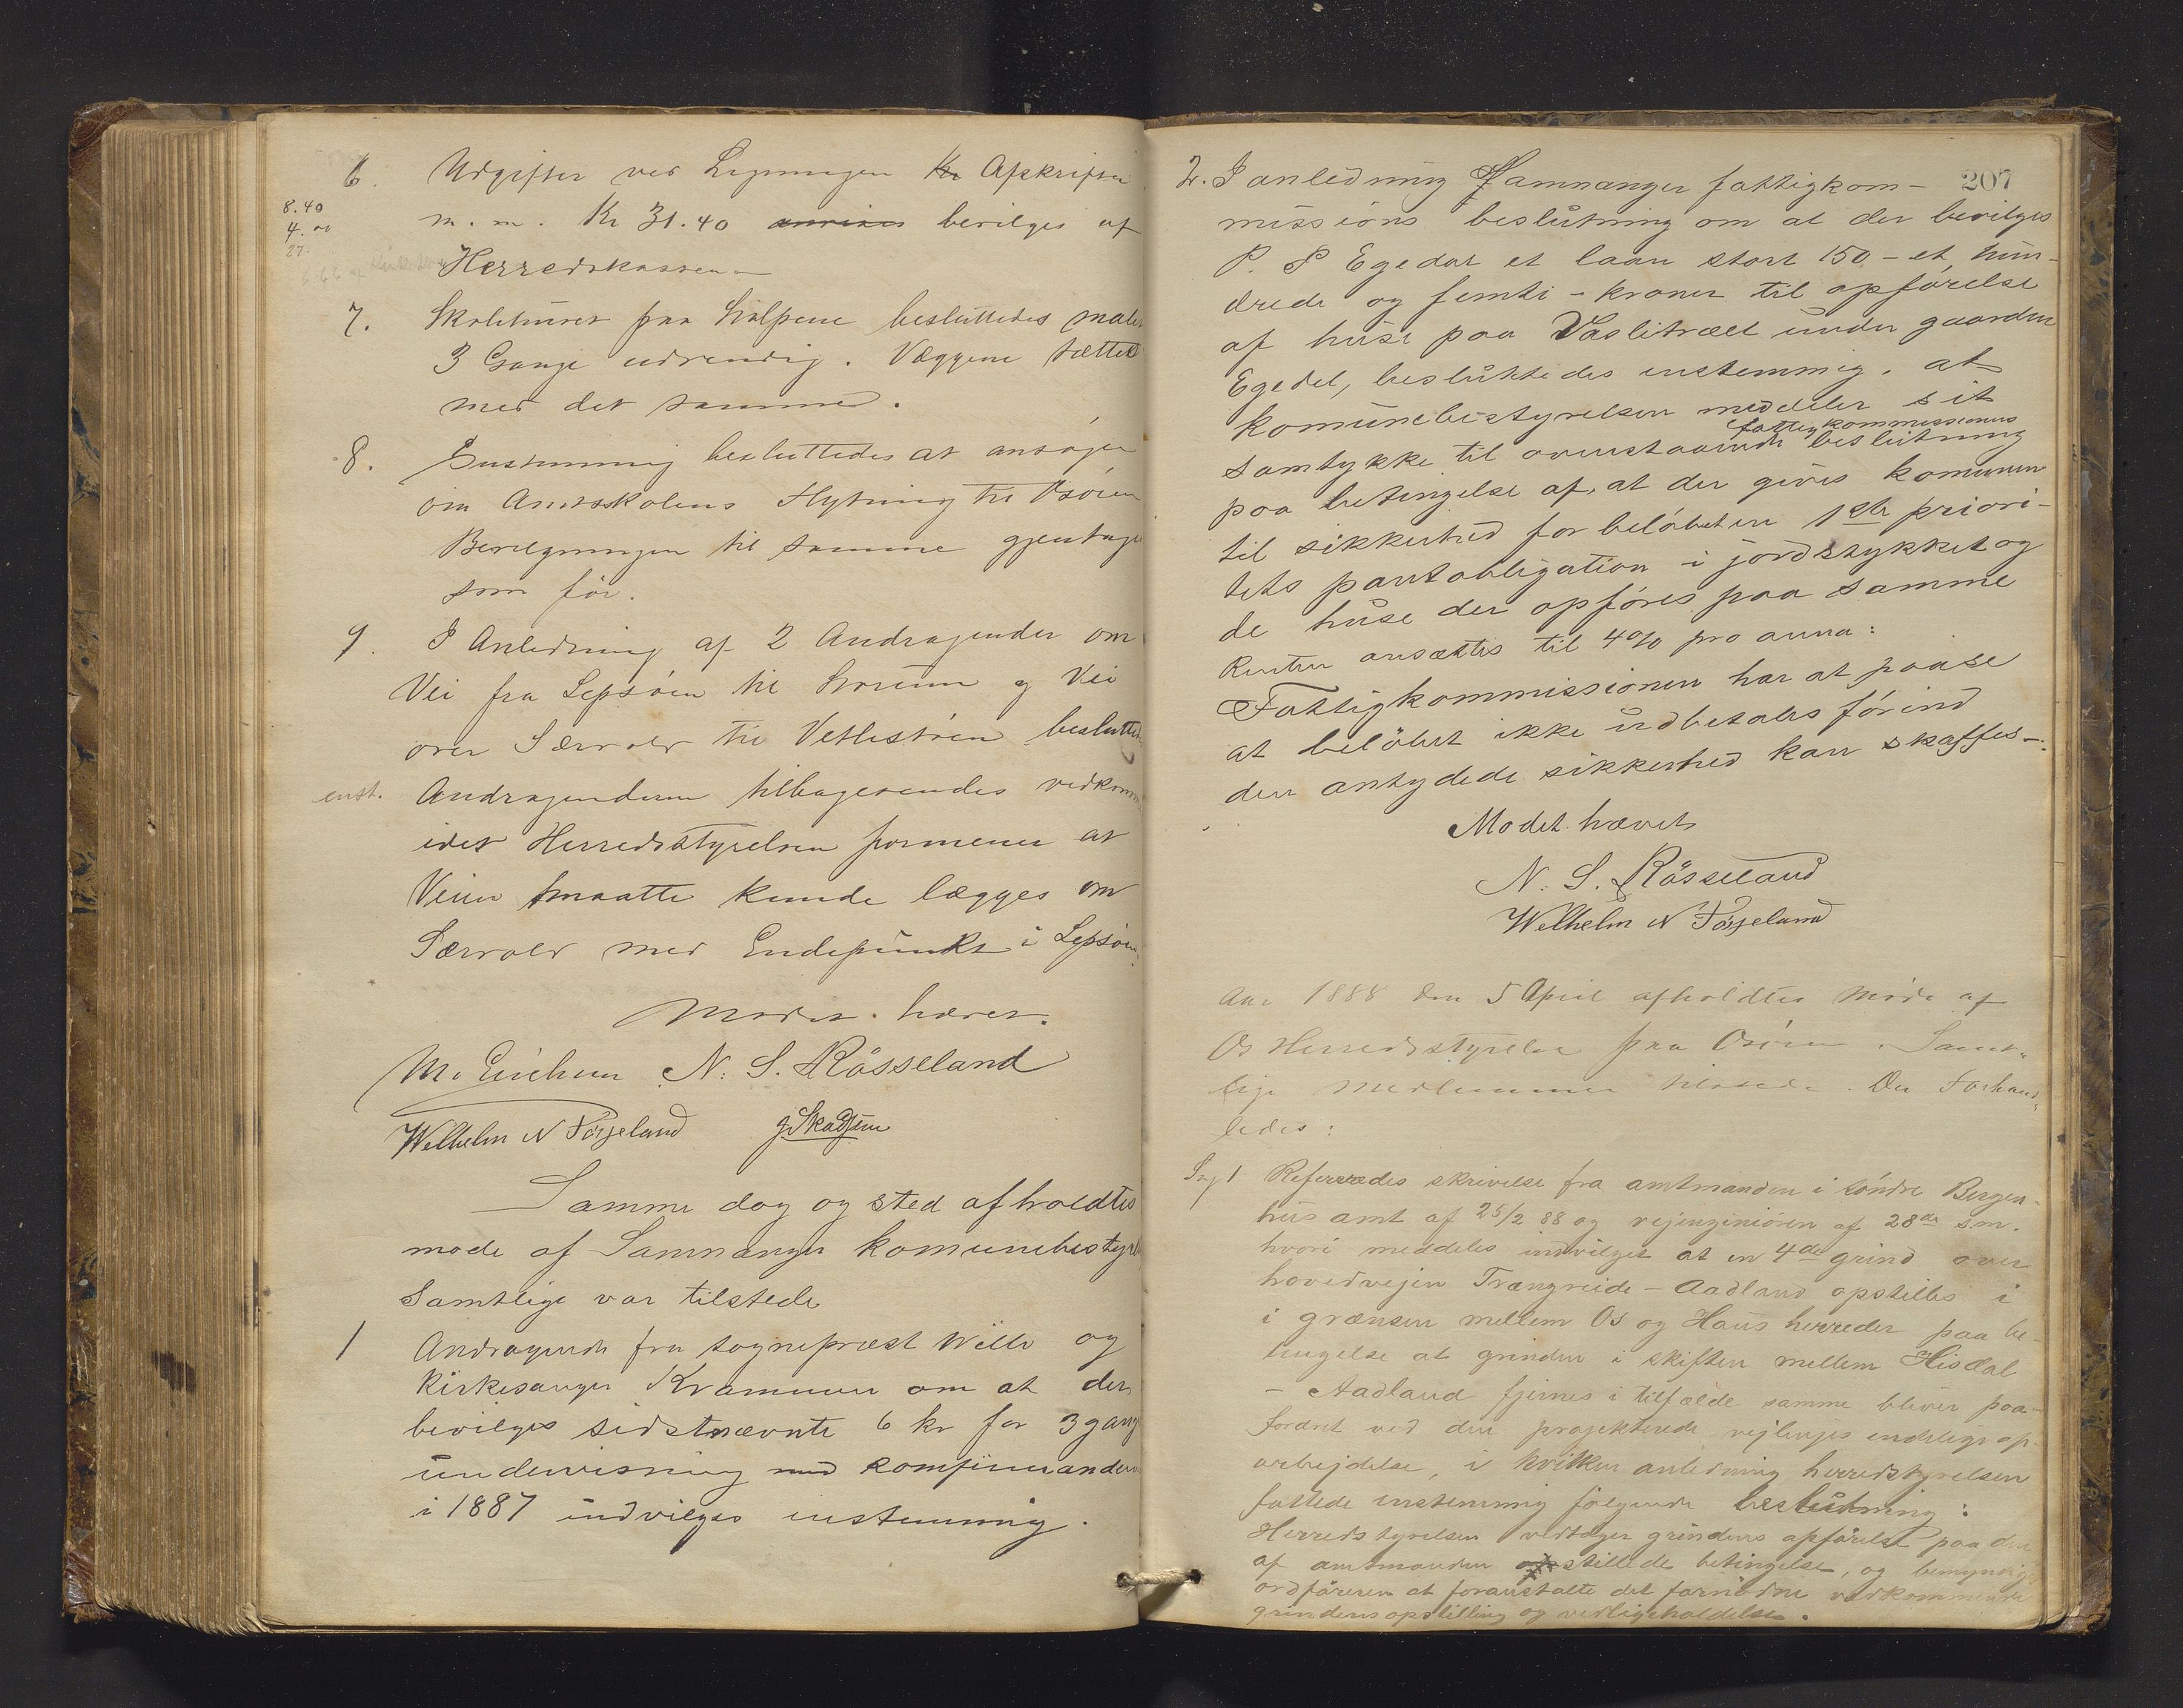 6. Udgifter ved Ligningen Kr Afskrifter
8.40
4.00
27.
m. m. Kr 31.40 anvises bevilges af
Herredskassen
7. Skolehuset paa besluttedes malet
3 Gange udvendig. Væggene tættet
med det samme.
8. Enstemmig besluttedes at ansøge
om Amtsskolens Flytning til Osøren
Bevilgningen til samme gjentages
som før.
9. I Anledning af 2 Andragender om
Vei fra Lepsøen til og Vei
over Særvold til Vetlestøen besluttedes
enst. Andragenderne tilbagesendes vedkom
idet Herredsstyrelsen formener at
Veien maatte kunde lægges om
Særvold med Endepunkt i Lepsøen.
Mødet hævet.
N. S. Røsseland
Welhelm N Tøsseland
Samme dag og sted afholdtes
møde af Samnanger komunebestyrel
Samtlige var tilstede
1 Andragende fra sogneprest Wille og
kirkesanger Kvammen om at der
bevilges sidstnævnte 6 kr for 3 gang
undervisning med komfirmandern
i 1887 indvilges enstemmig.
207
2. I anledning Samnanger fattigkom-
missions beslutning om at der bevilges
P. P Egedal et laan stort 150 - et hun-
drede og femti - kroner til opførelse
af huse paa Vaslitræet under gaarden
Egedal, besluttedes enstemmig, at
komunebestyrelsen meddeler sit
fattigkommissionens
samtykke til ovenstaaende beslutning
paa betingelse af, at der gives komunen
til sikkerhed for beløbet en 1ste priori-
tets pantobligation i jordstykket og
de huse der opføres paa samme
Renten ansættes til 4% pro anna:
Fattigkommissionen har at paase
at beløbet ikke udbetales førind
den antydede sikkerhed kan skaffes-:
Mødet hævet
N. S. Røsseland
Welhelm N Tøsseland
Aar 1888 den 5 April afholdtes Møde af
Os Herredsstyrelse paa Osøren. Samt-
lige Medlemmer tilstede. Der Forhand-
ledes:
Sag 1 Refereredes skrivelse fra amtmanden i søndre Bergen-
hus amt af 25/2 88 og vejinginiøren af 28de s.m.
hvori meddeles indvilget at en 4de grind over
hovedvejen Trængreide - Aadland opstilles i
i grænsen mellem Os og Haus herreder paa be-
tingelse at grinden i skiften mellem Hisdal
- Aadland fjernes i tilfælde samme bliver paa-
fordret ved den projekterede vejlinjes endelige op-
arbejdelse, i hvilken anledning herredstyrelsen
fattede enstemmig følgende beslutning:
Herredstyrelsen vedtager grindens opførelse paa den
af amtmanden opstillede betingelse, og bemyndiger
ordføreren at foranstalte det fornødne vedkommende
grindens opstilling og vedligeholdelse.